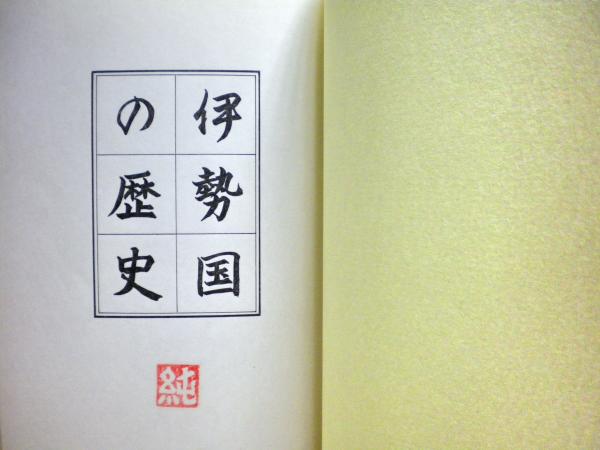 伊勢国
の歴史
純